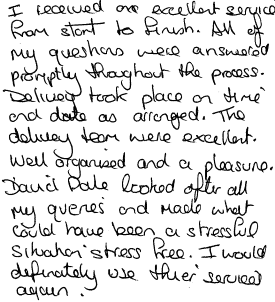 I received an excellent service
from start to finish. All of
my questions were answered
promptly throughout the process.
Delivery took place on time
and date as arranged. The
delivery team were excellent.
Well organised and a pleasure.
David Dale looked after all
my queries and made what
could have been a stressful
situation stress free. I would
definately use thier services
again.